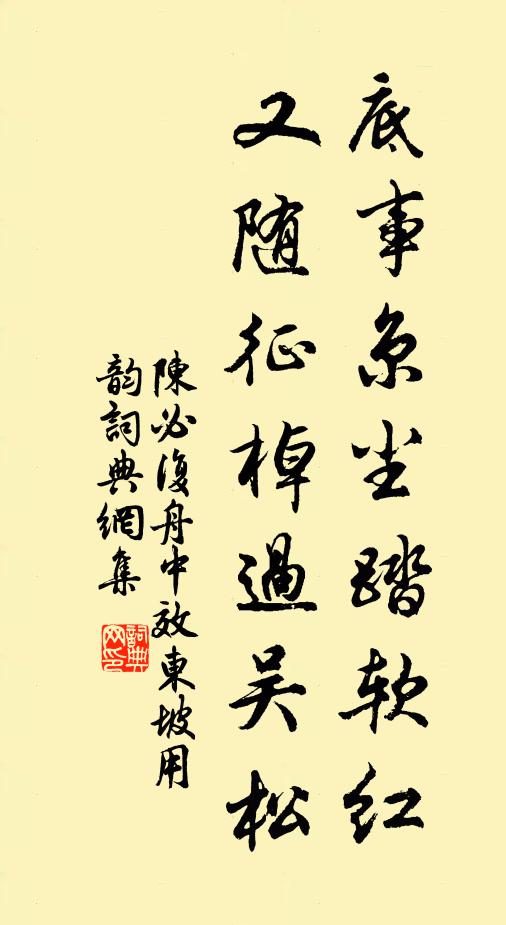 底事京尘踏软红
又随征棹過吴松
陳必復舟中效東坡用
韵詞典網集
詞典网印